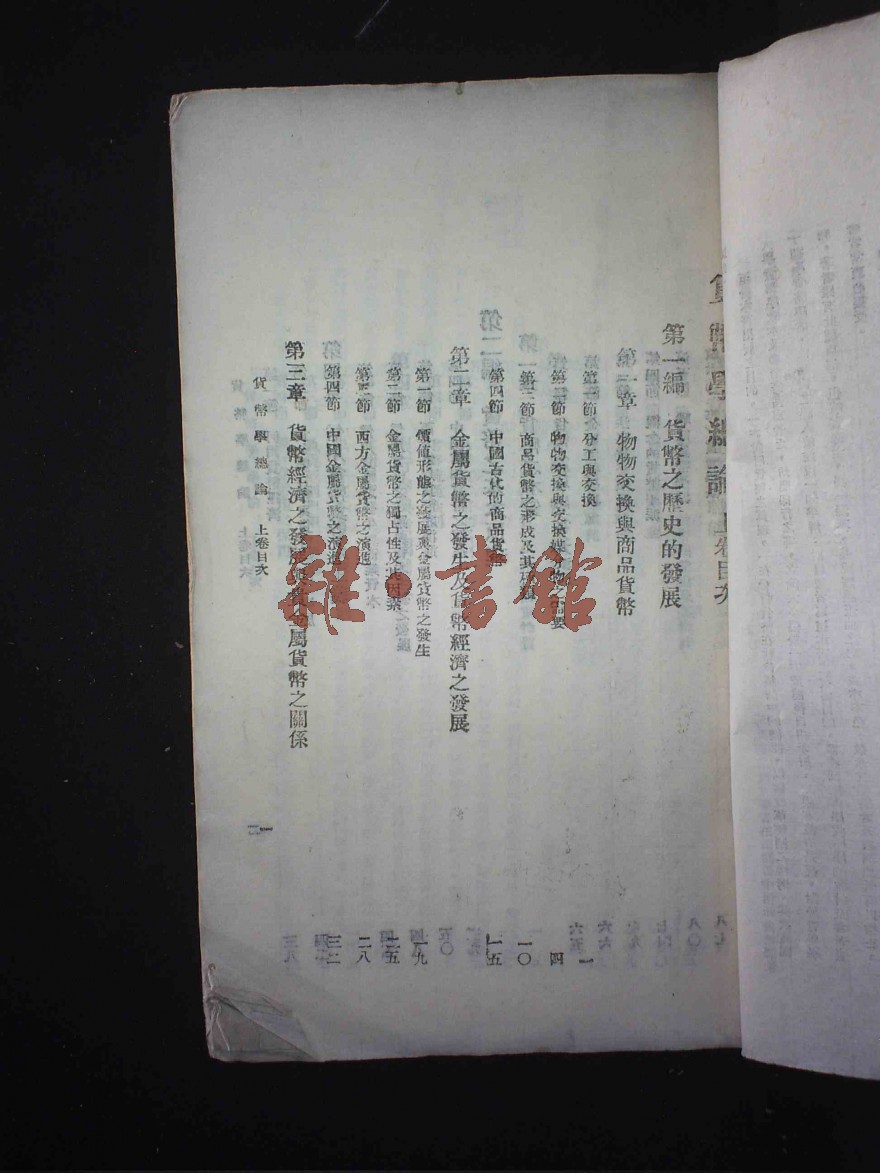 貨幣學總論 上卷目次
第一編 貨幣之歷史的發展
第一章 物物交換與商品貨幣
第一節 分工與交換 一
第二節 物物交換與交換媒介物之需要 四
第三節 商品貨幣之形成及其 一〇
第四節 中國古代的商品貨幣 一五
第二章 金屬貨幣之發生及貨幣經濟之發展
第一節 價値形態之發展與金屬貨幣之發生 一九
第二節 金屬貨幣之獨占性及其因素 二五
第三節 西方金屬貨幣之演進 二八
第四節 中國金屬貨幣之演進 三二
第三章 貨幣經濟之發展 金屬貨幣之關係
貨幣學總論 上卷目次
一
雜書館